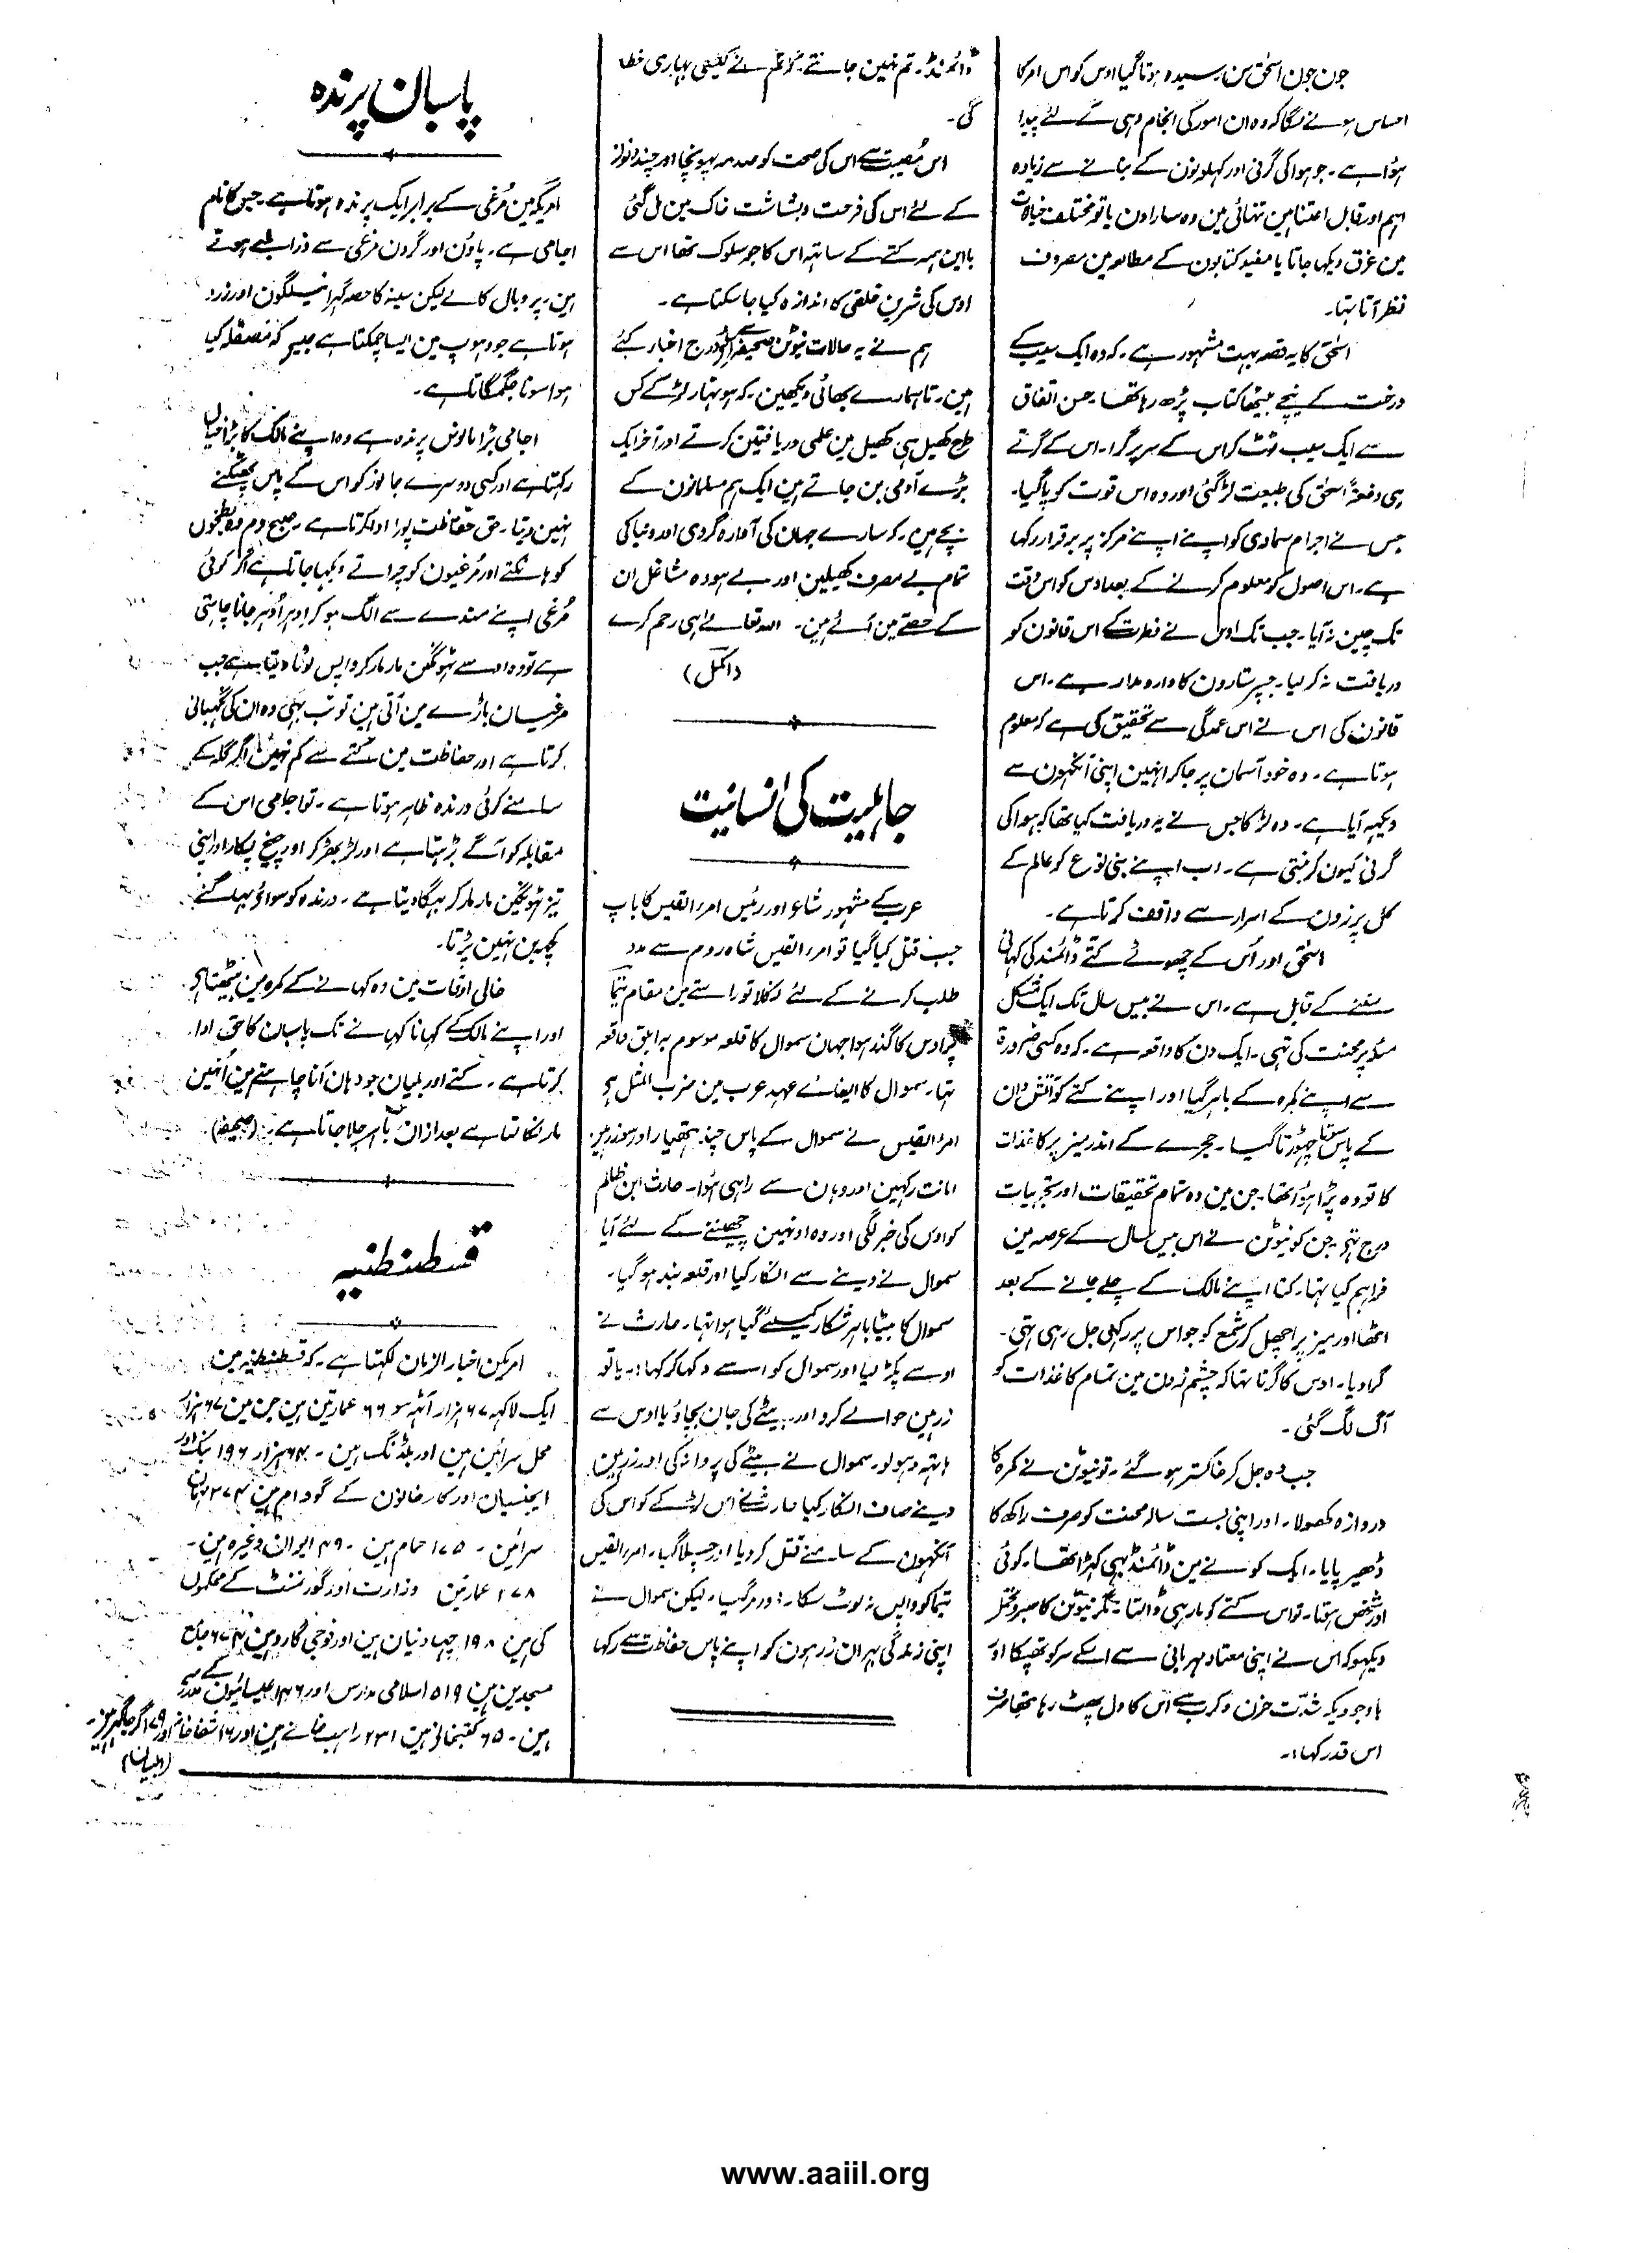 جون جون اسحٰق سن رسیدہ ہوتا گیا اوس کو اس امر کا
احساس ہونے لگا کہ وہ ان امور کی انجام دہی کے لئے پیدا
ہؤا ہے۔ جو ہوا کی گرنی اور کہلونون کے بنانے سے زیادہ
اہم اور قابل اعتنا ہین تنہائی مین وہ سارا دن یا تو مختلف خیالات
مین غرق دیکہا جاتا یا مفید کتابون کے مطالعہ مین مصروف
نظر آتا تہا۔
اسحٰق کا یہ قصہ بہت مشہور ہے۔ کہ وہ ایک سیب کے
درخت کے نیچے بیٹھا کتاب پڑھ رہا تھا۔ حسن اتفاق
سے ایک سیب ٹوٹ کر اس کے سر پر گرا۔ اس کے گرتے
ہی دفعۃً اسحٰق کی طبیعت لڑ گئی اور وہ اس قوت کو پا گیا۔
جس نے اجرام سماوی کو اپنے اپنے مرکز پر برقرار رکہا
ہے۔ اس اصول کو معلوم کرنے کے بعد اوس کو اس وقت
تک چین نہ آیا۔ جب تک اوس نے فطرت کے اس قانون کو
دریافت نہ کر لیا۔ جسپر ستارون کا دارومدار ہے۔ اس
قانون کی اس نے اس عمدگی سے تحقیق کی ہے کہ معلوم
ہوتا ہے۔ وہ خود آسمان پر جا کر انہین اپنی آنکہون سے
دیکہہ آیا ہے۔ وہ لڑکا جس نے یہ دریافت کیا تھا کہ ہوا کی
گرنی کیون کر بنتی ہے۔ اب اپنے بنی نوع کو عالم کے
کل پرزون کے اسرار سے واقف کرتا ہے۔
اسحٰق اور اُس کے چھوٹے کتے ڈائمنڈ کی کہانی
سننے کے قابل ہے۔ اس نے بیس سال تک ایک مشکل
مسئلہ پر محنت کی تہی۔ ایک دن کا واقعہ ہے۔ کہ وہ کسی ضرورۃ
سے اپنے کمرہ کے باہر گیا اور اپنے کتے کو آتش دان
کے پاس سوتا چھوڑتا گیا۔ حجرے کے اندر میز پر کاغذات
کا تودہ پڑا ہوا تھا۔ جن مین وہ تمام تحقیقات اور تجربیات
درج تہے جن کو نیوٹن نے اس بیس سال کے عرصہ مین
فراہم کیا تہا۔ کتا اپنے مالک کے چلے جانے کے بعد
اٹھا اور میز پر اچھل کر شمع کو جو اس پر رکہی جل رہی تہی۔
گرا دیا۔ اوس کا گرنا تہا کہ چشم زدن مین تمام کاغذات کو
آگ لگ گئی۔
جب وہ جل کر خاکستر ہو گئے۔ تو نیوٹن نے کمرہ کا
دروازہ کھولا۔ اور اپنی بست سالہ محنت کو صرف راکھ کا
ڈھیر پایا۔ ایک کونے مین ڈائمنڈ بہی کھڑا تھا۔ کوئی
اور شخص ہوتا۔ تو اس کتے کو مار ہی ڈالتا۔ مگر نیوٹن کا صبر و تحمل
دیکہو کہ اس نے اپنی معتاد مہربانی سے اسکے سر کو تھپکا اور
باوجودیکہ شدت حزن و کرب سے اُس کا دل پھٹ رہا تھا صرف
اس قدر کہا:۔
ڈائمنڈ۔ تم نہین جانتے۔ کہ تم نے کیسی بہاری خطا
کی۔
اس مُصیبت سے اس کی صحت کو صدمہ پہونچا اور چند روز
کے لئے اس کی فرحت و بشاشت خاک مین مل گئی
با این ہمہ کتے کے ساتہہ اس کا جو سلوک تھا اس سے
اوس کی شرین خلقی کا اندازہ کیا جا سکتا ہے۔
ہم نے یہ حالات نیوٹن صحیفہ سے لیکر درج اخبار کئے
ہین۔ تا ہمارے بھائی دیکھین۔ کہ ہونہار لڑکے کس
طرح کھیل ہی کھیل مین علمی دریافتین کرتے اور آخر ایک
بڑے آدمی بن جاتے ہین ایک ہم مسلمانون کے
بچے ہین۔ کہ سارے جہان کی آوارہ گردی اور دنیا کی
تمام بے مصرف کھیلین اور بے ہودہ مشاغل ان
کے حصے مین آئے ہین۔ اللہ تعالےٰ ہی رحم کرے
(اکمل)
جاہلیت کی انسانیت
عرب کے مشہور شاعر اور رئیس امرء القیس کا باپ
جب قتل کیا گیا تو امرء القیس شاہ روم سے مدد
طلب کرنے کے لئے نکلا تو راستے مین مقام تیما
پر اوس کا گذر ہوا جہان سموال کا قلعہ موسوم بہ ابلق واقعہ
تہا۔ سموال کا ایفائے عہد عرب مین ضرب المثل ہے
امرء القیس نے سموال کے پاس چند ہتھیار اور سو زرہین
امانت رکہین اور وہان سے راہی ہُوا۔ حارث ابن ظالم
کو اوس کی خبر لگی اور وہ اونہین چھیننے کے لئے آیا
سموال نے دینے سے انکار کیا اور قلعہ بند ہو گیا۔
سموال کا بیٹا باہر شکار کے لئے گیا ہوا تہا۔ حارث نے
اوسے پکڑ لیا اور سموال کو اسے دکہا کر کہا:۔ یا تو
زرہین حوالے کرو اور بیٹے کی جان بچاؤ یا اوس سے
ہاتہہ دہو لو۔ سموال نے بیٹے کی پروا نہ کی اور زرہین
دینے صاف انکار کیا حارث نے اس لڑکے کو اس کی
آنکہون کے سامنے قتل کر دیا اور چلا گیا۔ امرء القیس
تیما کو واپس نہ لوٹ سکا۔ اور مر گیا۔ لیکن سموال نے
اپنی زندگی بہر ان زرہون کو اپنے پاس حفاظت سے رکہا
پاسبان پرندہ
امریکہ مین مُرغی کے برابر ایک پرندہ ہوتا ہے۔ جس کا نام
اجامی ہے۔ پاؤن اور گردن مرغی سے ذرا لمبے ہوتے
ہین۔ پر و بال کالے لیکن سینہ کا حصہ گہرا نیلگون اور زرد
ہوتا ہے جو دہوپ مین ایسا چمکتا ہے جیسے کہ مصقلہ کیا
ہوا سونا جگمگاتا ہے۔
اجامی بڑا مانوس پرندہ ہے وہ اپنے مالک کا بڑا خیال
رکہتا ہے اور کسی دوسرے جانور کو اس کے پاس پھٹکنے
نہین دیتا۔ حق حفاظت پورا ادا کرتا ہے۔ صبح دم وہ بطخون
کو ہانکتے اور مُرغیون کو چراتے دیکہا جاتا ہے اگر کوئی
مُرغی اپنے مندے سے الگ ہو کر ادہر اُدہر جانا چاہتی
ہے تو وہ اسے ٹھونگین مار مار کر واپس لوٹا دیتا ہے جب
مرغیان باڑے مین آتی ہین تو تب بہی وہ ان کی نگہبانی
کرتا ہے اور حفاظت مین کتے سے کم نہین اگر گلہ کے
سامنے کوئی درندہ ظاہر ہوتا ہے۔ تو اجامی اس کے
مقابلہ کو آگے بڑہتا ہے اور لڑ بھڑ کر اور چیخ پکار اور اپنی
تیز ٹھونگین مار مار کر بہگا دیتا ہے۔ درندہ کو سوائے بہاگنے
کچہہ بن نہین پڑتا۔
خالی اوقات مین وہ کہانے کے کمرہ مین بیٹھتا ہے
اور اپنے مالک کے کہانا کہانے تک پاسبان کا حق ادا
کرتا ہے۔ کتے اور بلیان جو وہان آنا چاہتے ہین اُنہین
مار نکالتا ہے بعد ازان باہر چلا جاتا ہے۔ (صحیفہ)
قسطنطنیہ
امریکن اخبار الزمان لکہتا ہے۔ کہ قسطنطنیہ مین
ایک لاکہہ ۶۷ ہزار آٹہہ سو ۶۶ عمارتین ہین جن مین ۶۷ ہزار
محل سرائین ہین اور بلڈنگ ہین۔ ۶۴ ہزار ۱۹۶ بنک اور
ایجنسیان اور کارخانون کے گودام ہین ۲۷۴
سرائین۔ ۱۷۵ حمام ہین۔ ۴۹ ایوان وغیرہ ہین۔
۲۷۸ عمارتین وزارت اور گورنمنٹ کے محکمون
کی ہین ۱۹۸ چہاونیان ہین اور فوجی گاردین ۶۷۴ جامع
مسجدین ہین ۵۱۹ اسلامی مدارس اور ۱۴۶ عیسائیون کے مدرسے
ہین۔ ۶۵ کتبخانے ہین ۲۳۱ راہب خانے ہین اور ۱۶ شفاخانے اور ۱۷۹ گرجا گہر ہین۔
(البیان)
www.aaiil.org